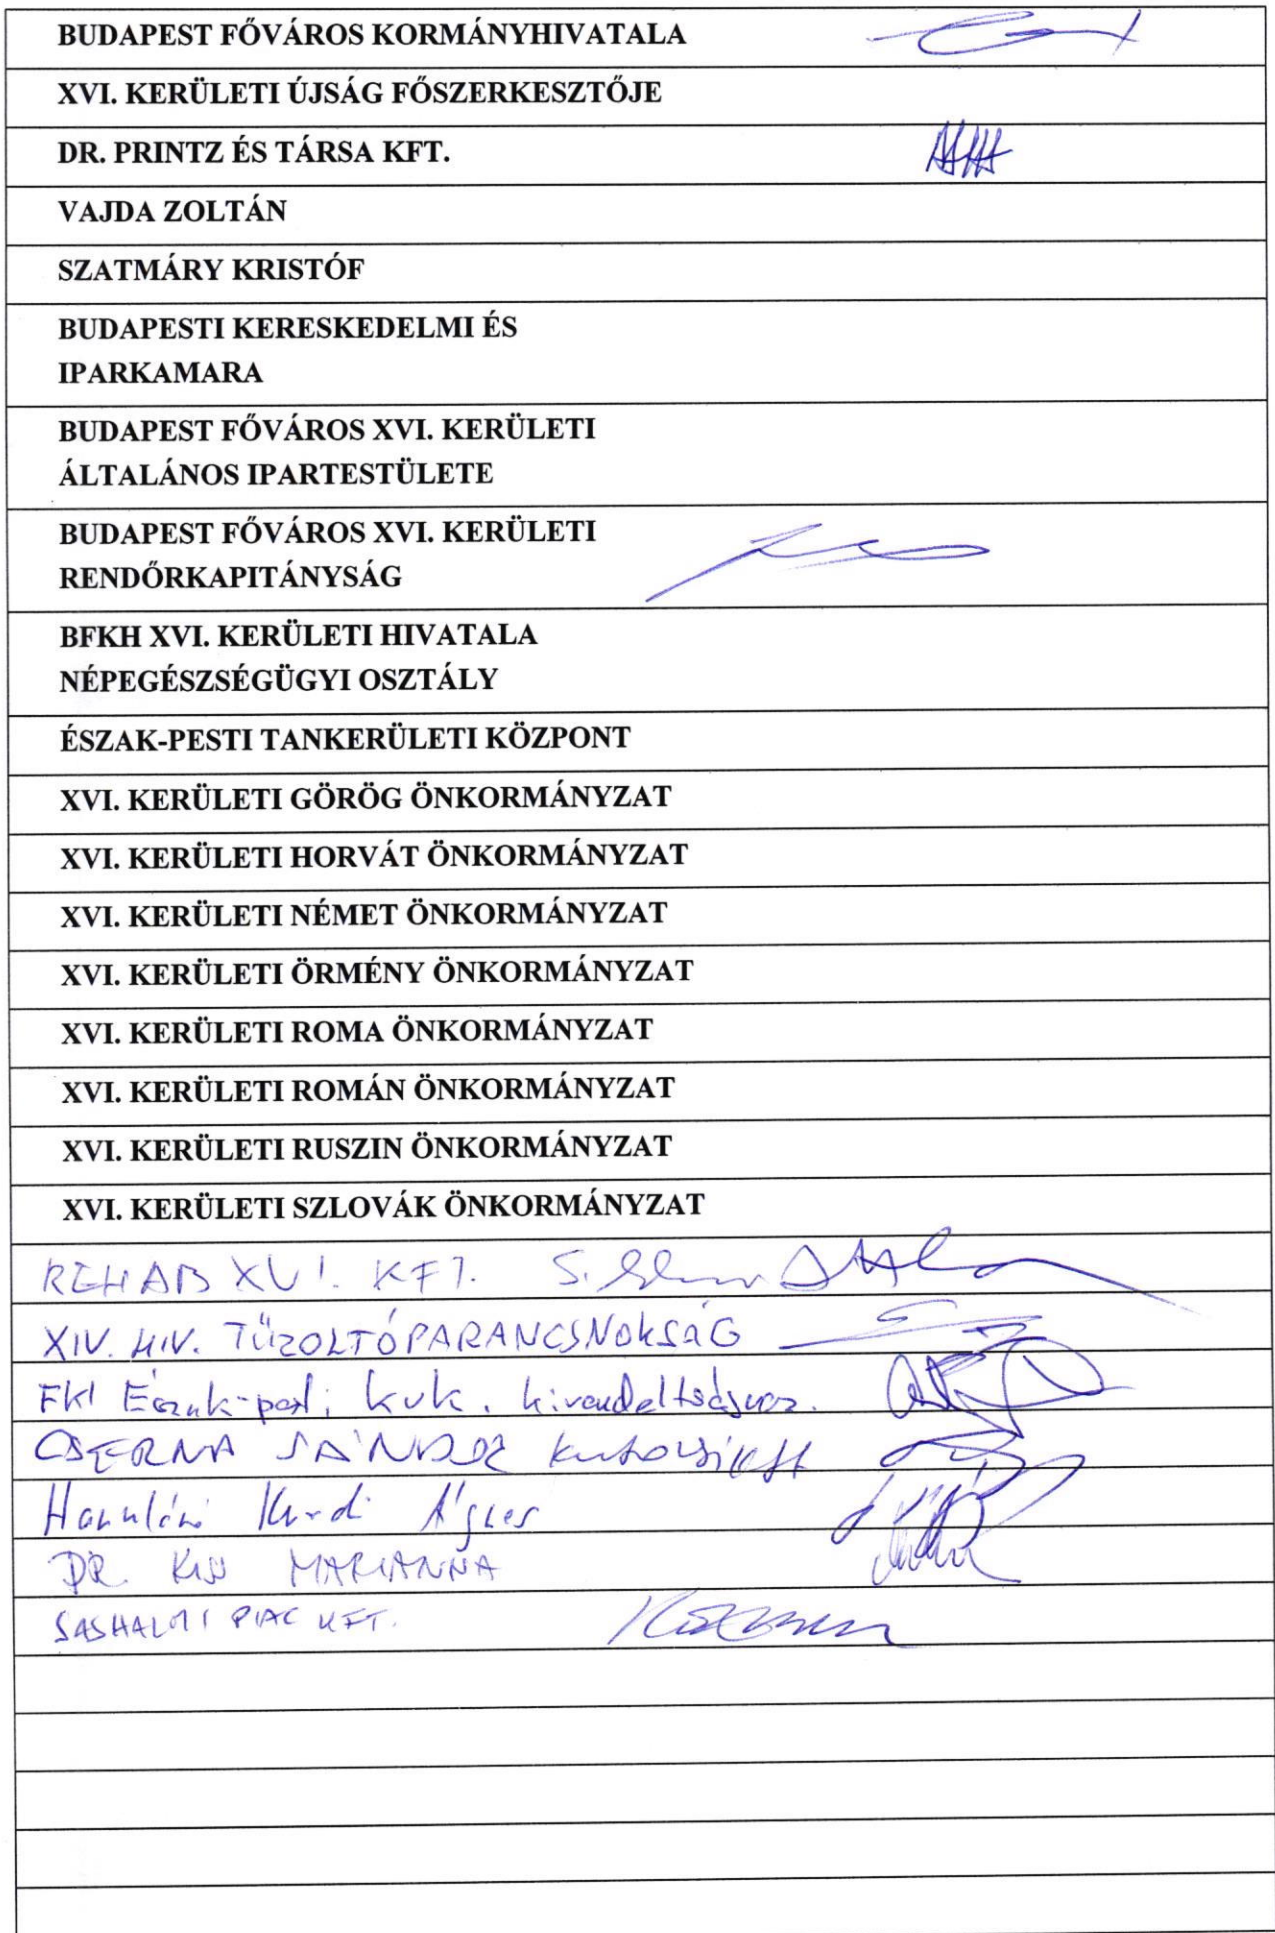 BUDAPEST FŐVÁROS KORMÁNYHIVATALA
XVI. KERÜLETI ÚJSÁG FŐSZERKESZTŐJE
DR. PRINTZ ÉS TÁRSA KFT.
VAJDA ZOLTÁN
SZATMÁRY KRISTÓF
BUDAPESTI KERESKEDELMI ÉS
IPARKAMARA
BUDAPEST FŐVÁROS XVI. KERÜLETI
ÁLTALÁNOS IPARTESTÜLETE
BUDAPEST FŐVÁROS XVI. KERÜLETI
RENDŐRKAPITÁNYSÁG
BFKH XVI. KERÜLETI HIVATALA
NÉPEGÉSZSÉGÜGYI OSZTÁLY
ÉSZAK-PESTI TANKERÜLETI KÖZPONT
XVI. KERÜLETI GÖRÖG ÖNKORMÁNYZAT
XVI. KERÜLETI HORVÁT ÖNKORMÁNYZAT
XVI. KERÜLETI NÉMET ÖNKORMÁNYZAT
XVI. KERÜLETI ÖRMÉNY ÖNKORMÁNYZAT
XVI. KERÜLETI ROMA ÖNKORMÁNYZAT
XVI. KERÜLETI ROMÁN ÖNKORMÁNYZAT
XVI. KERÜLETI RUSZIN ÖNKORMÁNYZAT
XVI. KERÜLETI SZLOVÁK ÖNKORMÁNYZAT
REHAB XVI. KFT.
XIV. HIV. TŰZOLTÓPARANCSNOKSÁG
FKI Észak-pesti
CSERNA SÁNDOR
Ágnes
DR. KISS MARIANNA
SASHALMI PIAC KFT.